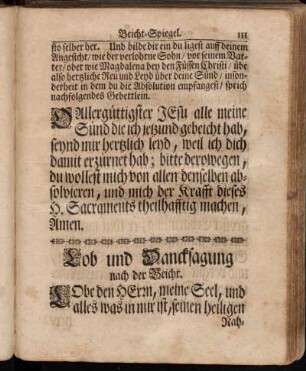 Beicht-Spiegel. 111
sto selber her. Und bilde dir ein du ligest auff deinem
Angesicht/ wie der verlohrne Sohn/ vor seinem Vat-
ter/ oder wie Magdalena bey den Füssen Christi/ übe
also hertzliche Reu und Leyd über deine Sünd/ inson-
derheit in dem du die Absolution empfangest/ sprich
nachfolgendes Gebettlein.
O Allergüttigster JEsu alle meine
Sünd die ich jetzund gebeicht hab,
seynd mir hertzlich leyd, weil ich dich
damit erzürnet hab; bitte derowegen,
du wollest mich von allen denselben ab-
solvieren, und mich der Krafft dieses
H. Sacraments theilhafftig machen,
Amen.
Lob und Dancksagung
nach der Beicht.
LObe den HErrn, meine Seel, und
alles was in mir ist, seinen heiligen
Nah-